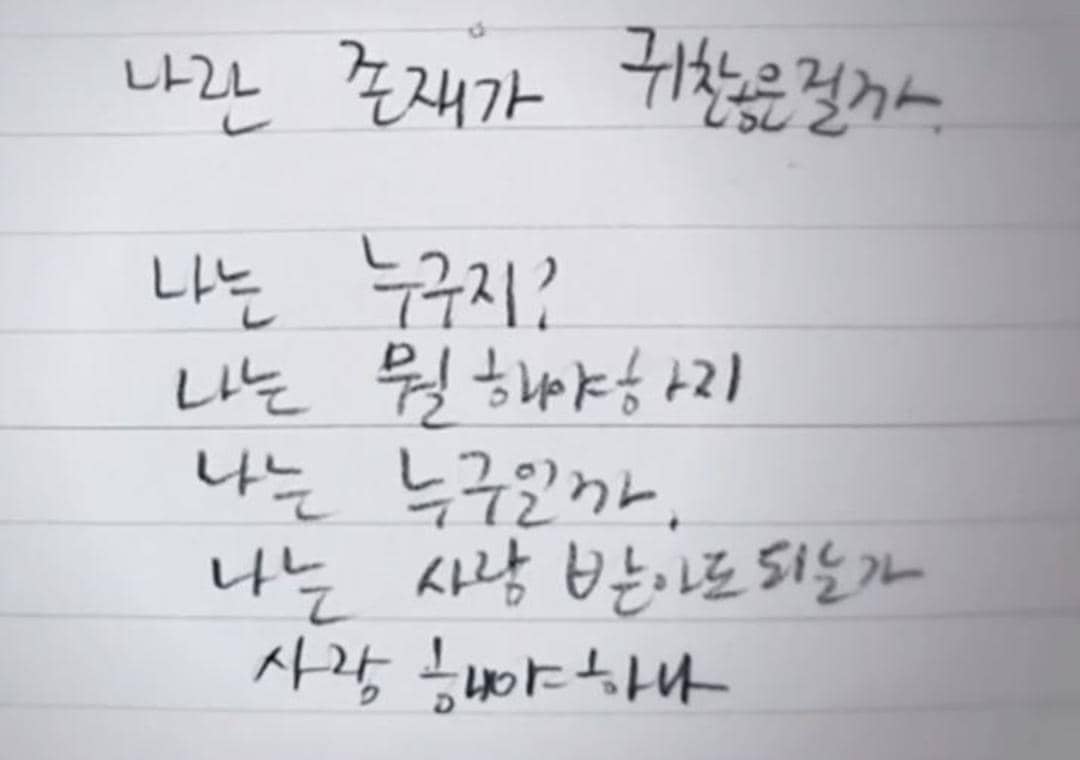 나란 존재가 귀찮은걸까.
나는 누구지?
나는 뭘해야하지
나는 누구일까.
나는 사랑 받아도되는가
사랑해야하나